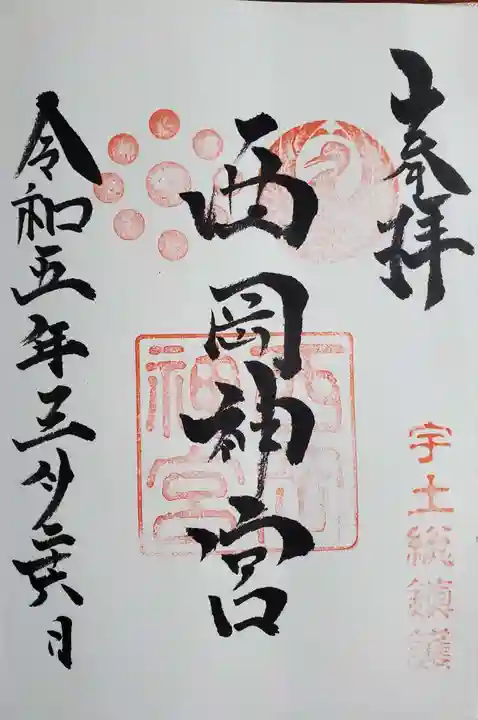 奉拝
宇土総鎮護
西岡神宮
西岡神宮
令和五年三月二十六日